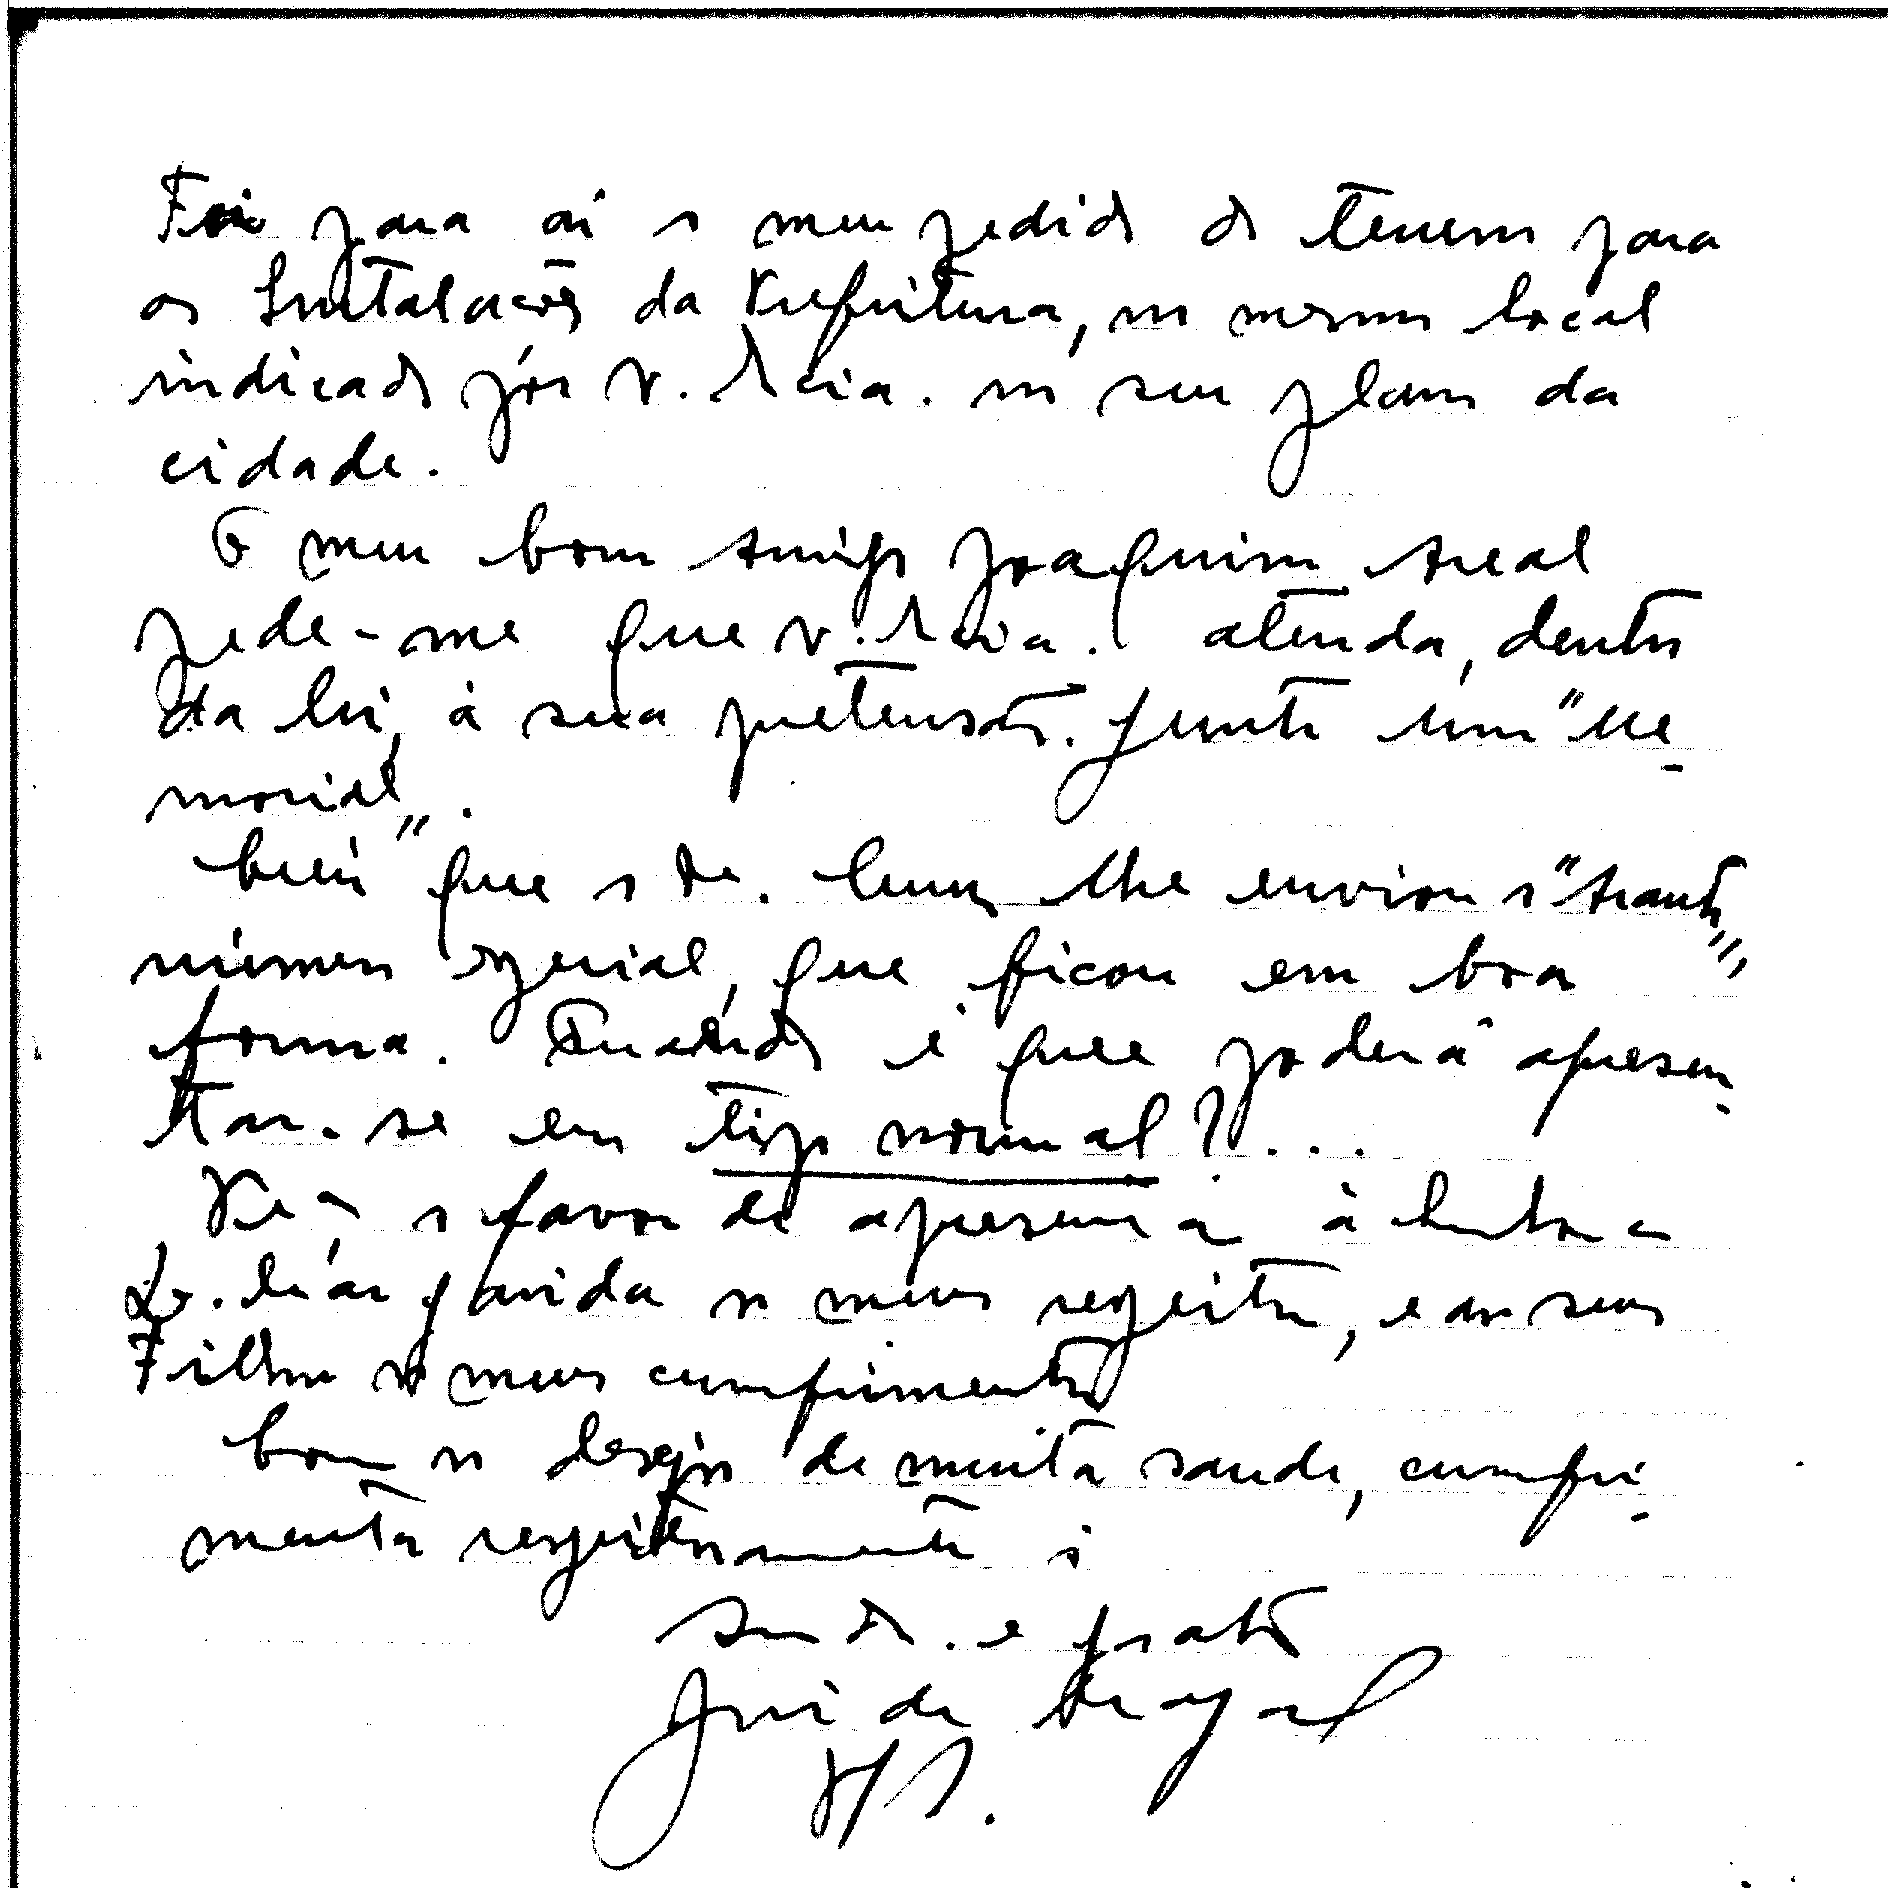 Foi para aí o meu pedido de terreno para
as Instalacões da Prefeitura, no mesmo local
indicado pôr V. Excia. no seu plano da
cidade.
O meu bom Amigo Joaquim Areal
pede-me que V. Excia. atenda, dentro
da lei, à sua pretensão. Junto um "Me-
morial".
Creio que o Dr. Cunha lhe enviou o "Arauto"
número especial, que ficou em boa
forma. Quando é que poderá apresen-
tar-se em tipo normal?...
Peço, o favor de apresentar à Senhora
D. garida os meus respeitos, e aos seus
Filhos os meus cumprimentos
Com os desejos de muita saude, cumpri-
menta respeitosamente o
e grato
José de